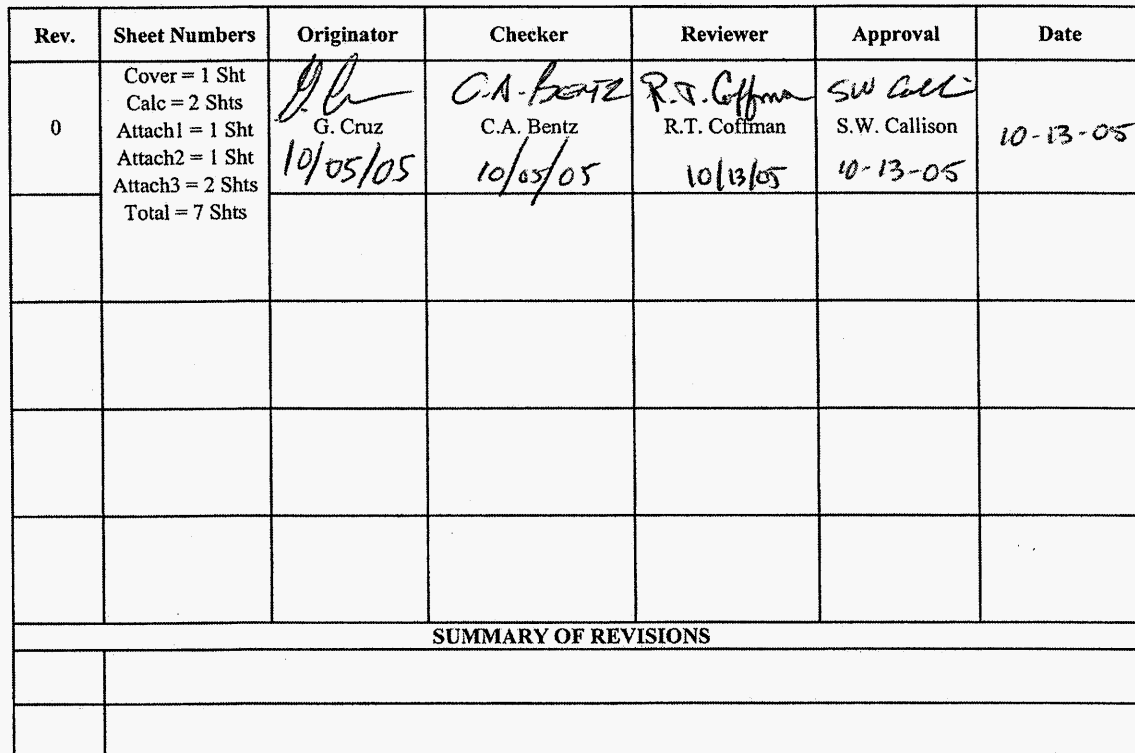 Rev. Sheet Numbers Originator Checker Reviewer Approval Date
0
Cover = 1 Sht
Calc = 2 Shts
Attach1 = 1 Sht
Attach2 = 1 Sht
Attach3 = 2 Shts
Total = 7 Shts
G. Cruz
10/05/05
C.A. BENTZ
C.A. Bentz
10/05/05
R.T. Coffman
R.T. Coffman
10/13/05
S.W. Callison
10-13-05
10-13-05
SUMMARY OF REVISIONS